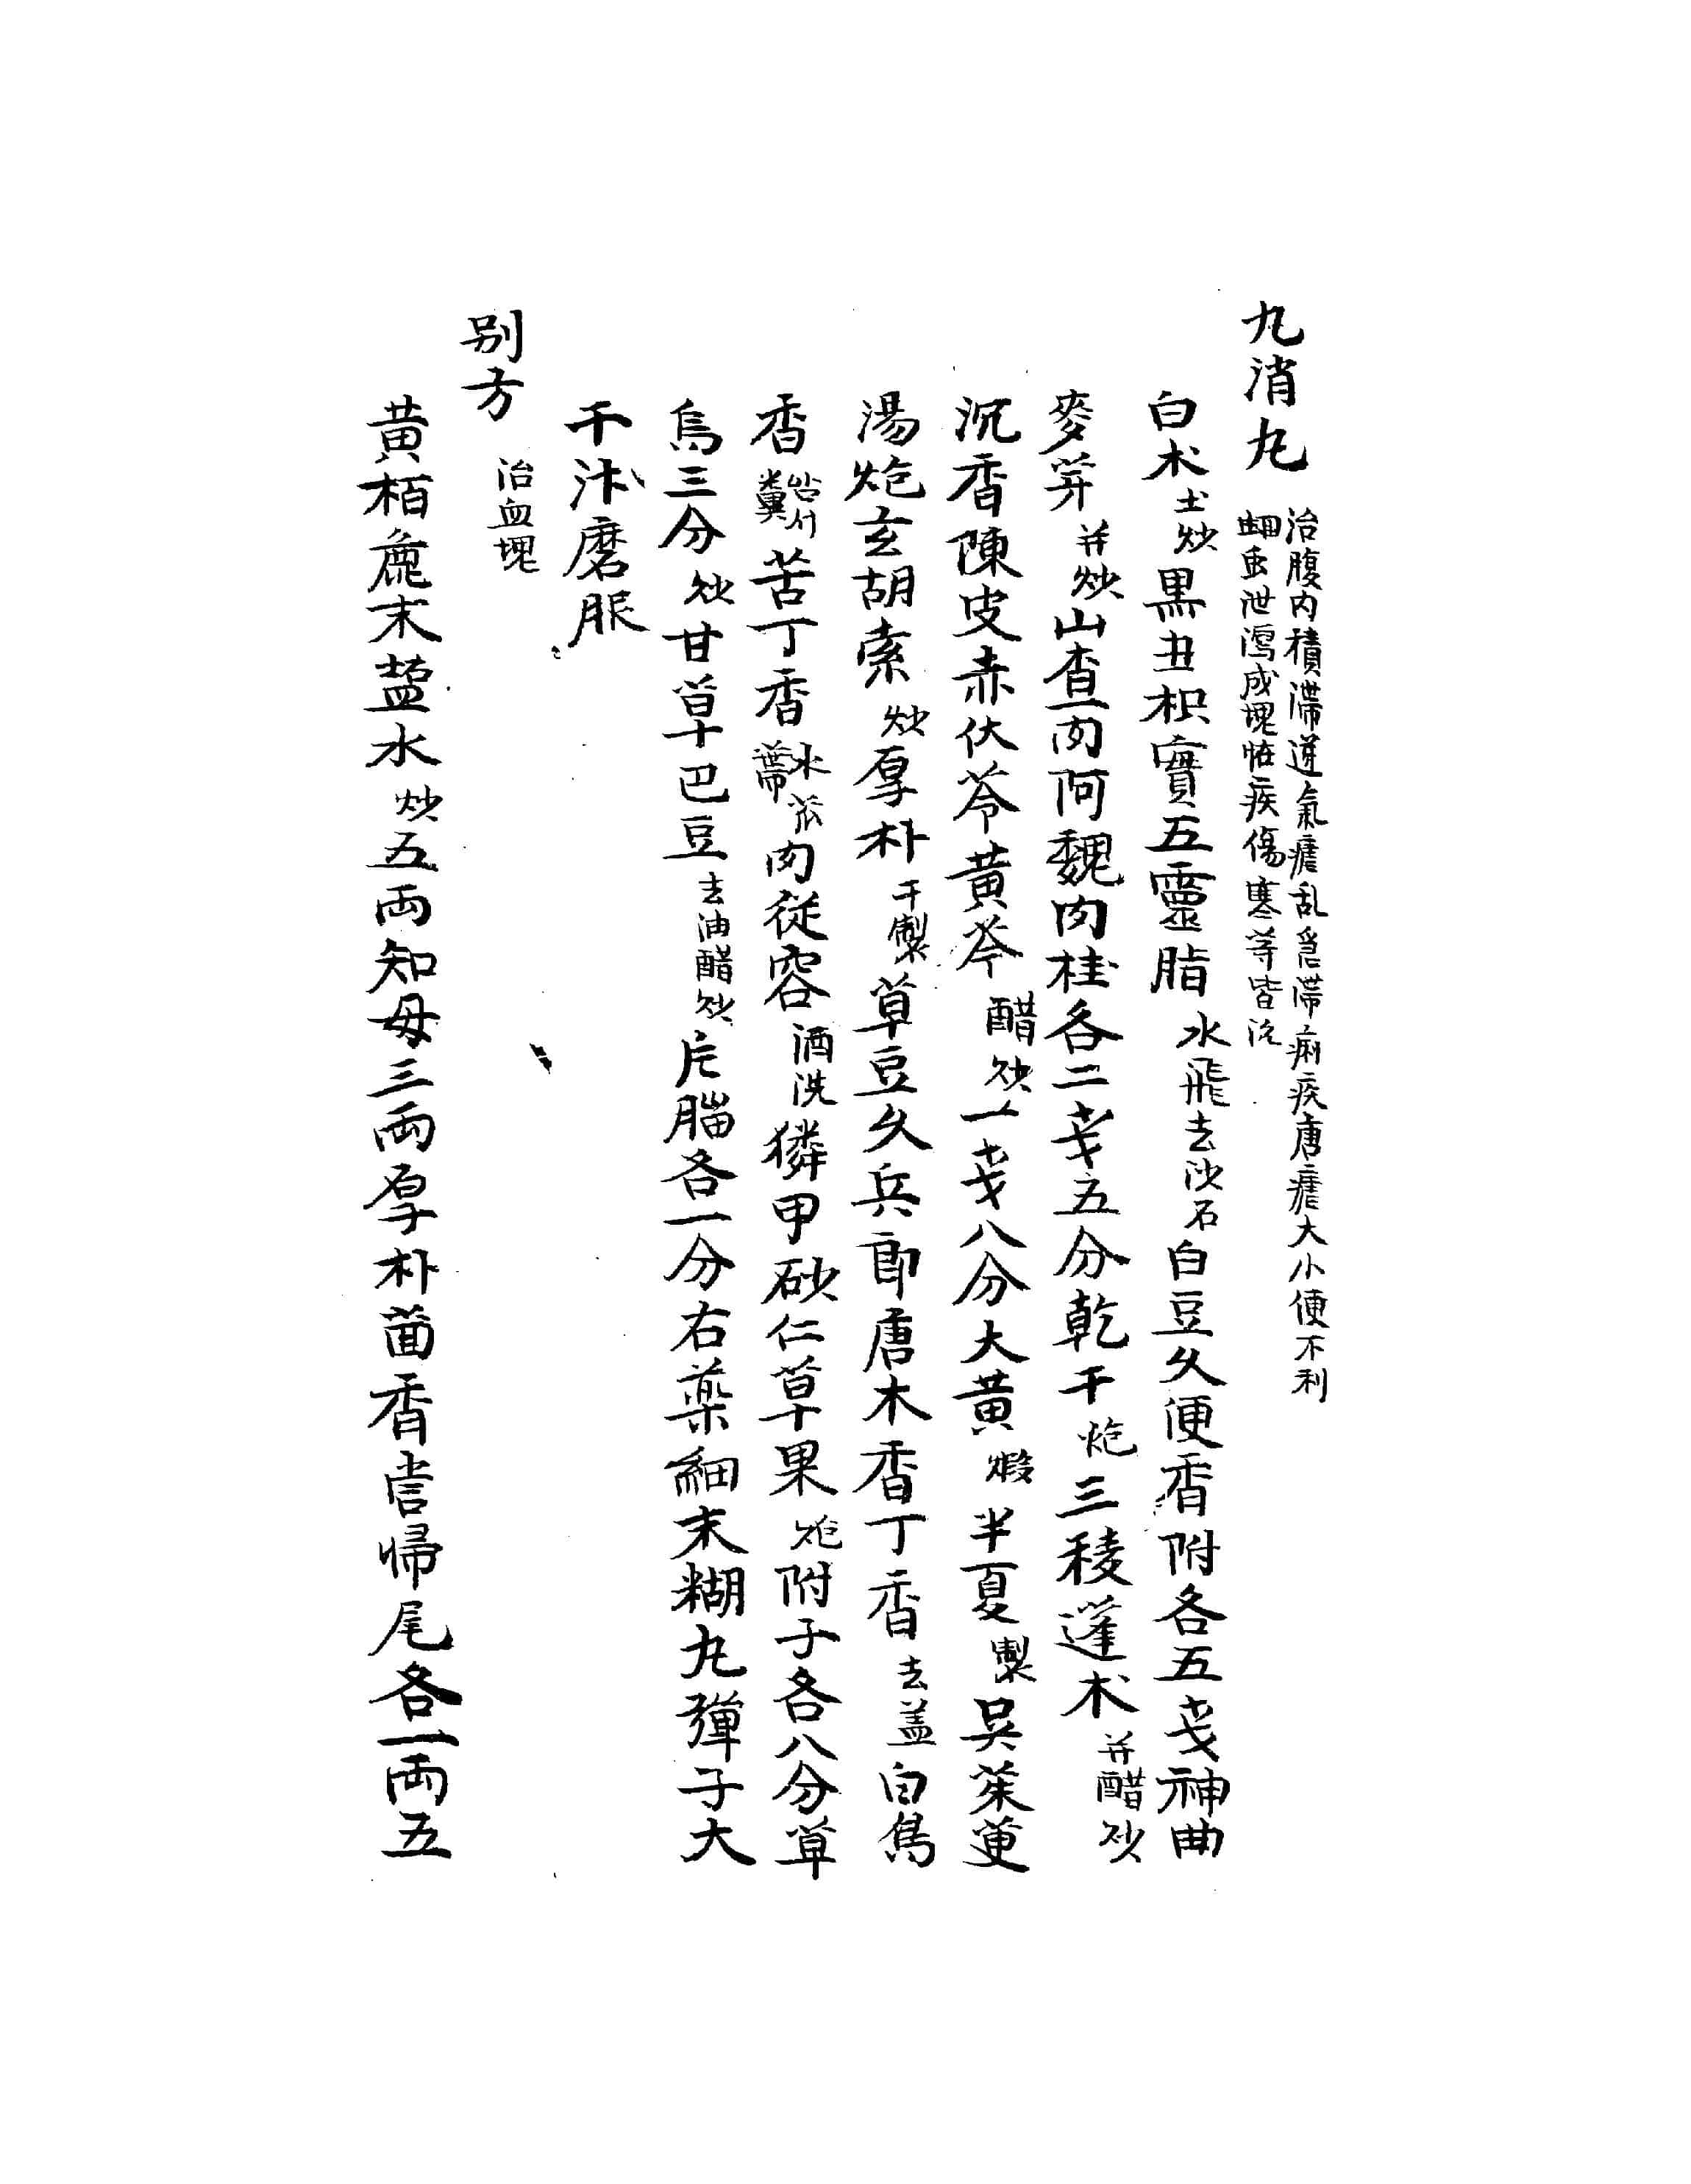 九消丸 治腹内積滯逆氣瘧乱急滯痢疾唐瘧大小便不利
蛔虫泄瀉成塊恠疾傷寒等皆治
白朮土炒黒丑枳實五靈脂水飛去沙石白豆久便香附各五戔神曲
麥芽并炒山査肉阿魏肉桂各二戔五分乾干炮三稜蓬朮并醋炒
沉香陳皮赤伏苓黄芩醋炒一戔八分大黄煆半夏製吳茱萸
湯炮玄胡索炒厚朴干製草豆久兵郎唐木香丁香去盖白鳥
香 糞苦丁香水苽蔕肉從容酒洗獜甲砂仁草果炮附子各八分草
烏三分炒甘草巴豆去油醋炒片腦各一分右藥細末糊丸彈子大
干汁磨服
別方 治血塊
黄栢麁末盐水炒五両知母三両厚朴茴香當帰尾各一両五